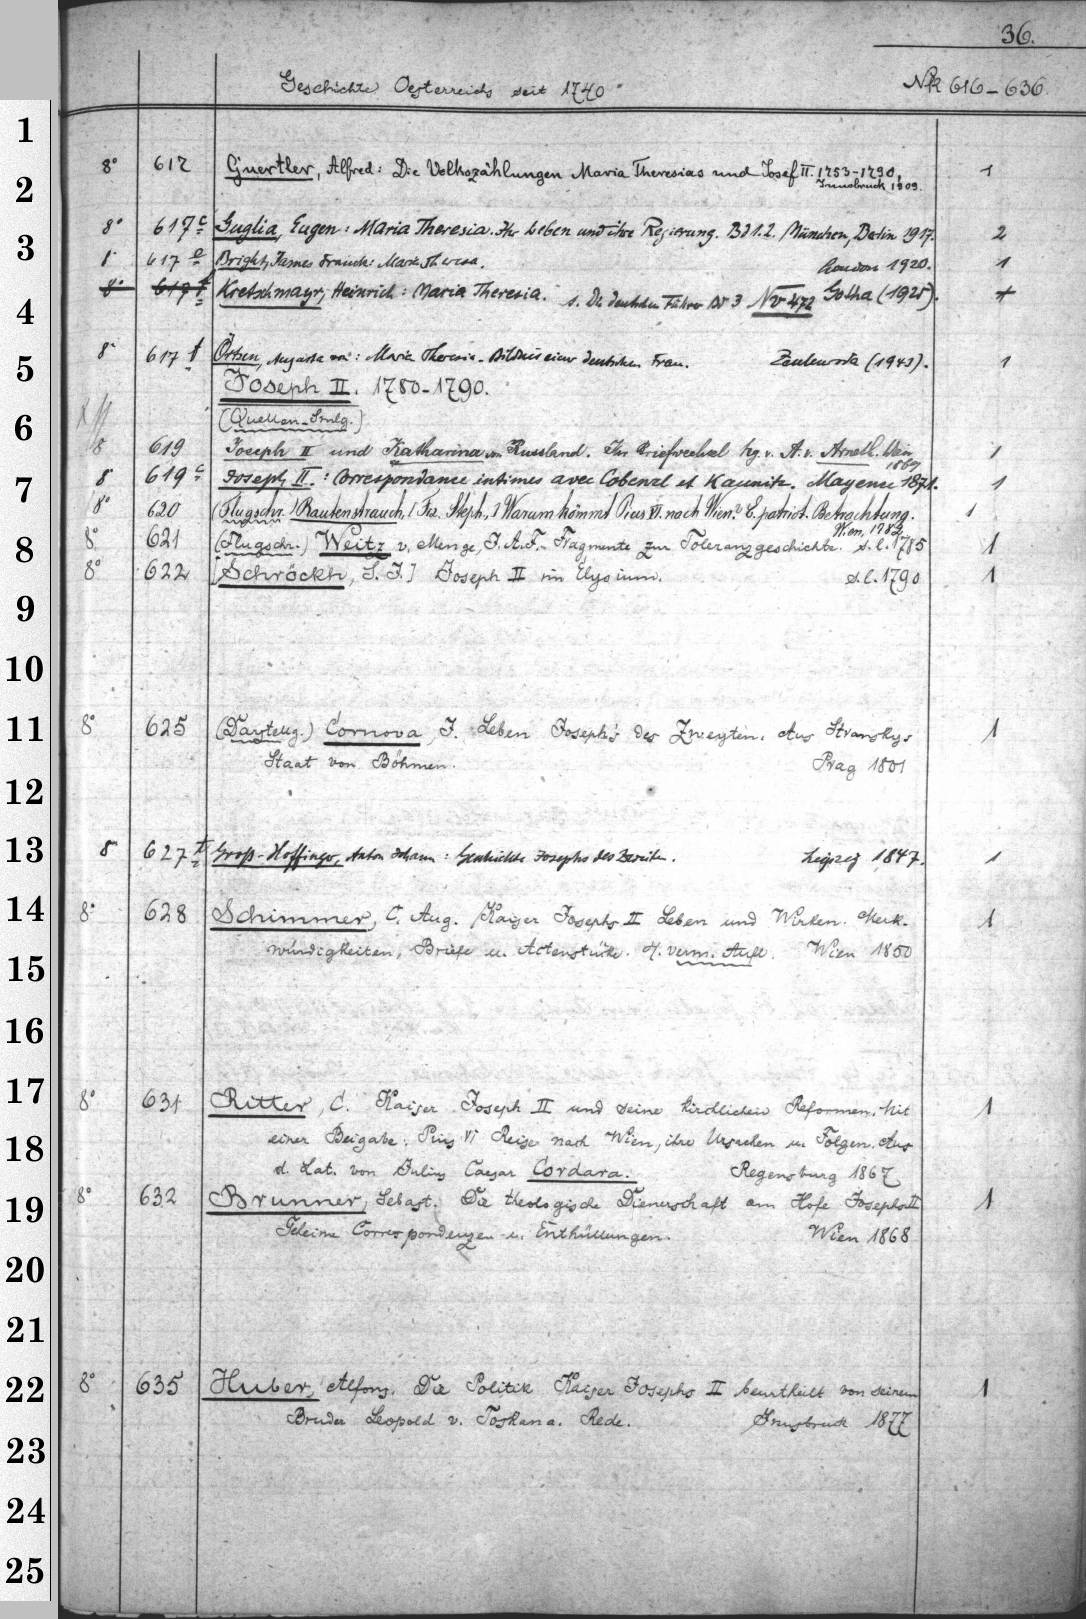 36.
Geschichte Oesterreichs seit 1740
Nr 616-636.
1
8° 617 Guertler, Alfred: Die Volkszählungen Maria Theresias und Josef II. 1753-1790, 1
2
Innsbruck 1909.
8° 617c Guglia, Eugen: Maria Theresia. Ihr Leben und ihre Regierung. Bd 1.2. München, Berlin 1917. 2
3
617e Bright, James Franck: Maria Theresa. London 1920. 1
8° 617f Kretschmayr, Heinrich: Maria Theresia. s. Die deutschen Führer Bd 3 Nr 472 Gotha (1925).
4
8° 617t Örtzen, Augusta von: Maria Theresia. Bildnis einer deutschen Frau. (1943). 1
5
Joseph II. 1780-1790.
(Quellen-Smlg.)
6
8 619 Joseph II und Katharina von Russland. Ihr Briefwechsel hg. v. A. v. Arneth. Wien 1
1869
7
8 619c Joseph II.: Correspondance intimes avec Cobenzl et Kaunitz. Mayence 1871. 1
8° 620 (Flugschr.) [Rautenstrauch, [Frz. Steph.,] Warum kömmt Pius VI. nach Wien? E. patriot. Betrachtung. 1
Wien, 1782
8
8° 621 (Flugschr.) Weitz v. Menge, J. A. F. Fragmente zur Toleranzgeschichte. s. l. 1785 1
8° 622 [Schröckh, S. J.] Joseph II im Elysium. s. l. 1790 1
9
10
11
8° 625 (Darstellg.) Cornova, J. Leben Joseph's des Zweyten. Aus Stransky's 1
Staat von Böhmen. Prag 1801
12
13
8° 627t Groß-Hoffinger, Anton Johann: Geschichte Josephs des Zweiten. Leipzig 1847. 1
14
8° 628 Schimmer, C. Aug. Kaiser Josephs II Leben und Wirken. Merk- 1
würdigkeiten, Briefe u. Actenstücke. verm. Aufl. Wien 1850
15
16
17
8° 631 Ritter, C. Kaiser Joseph II und seine kirchlichen Reformen. Mit 1
18
einer Beigabe: Pius VI Reise nach Wien, ihre Ursachen u. Folgen. Aus
d. Lat. von Julius Caesar Cordara. Regensburg 1867
19
8° 632 Brunner, Sebast. Die theologische Dienerschaft am Hofe Josephs II 1
Geheime Correspondenzen u. Enthüllungen. Wien 1868
20
21
22
8° 635 Huber, Alfons. Die Politik Kaiser Josephs II beurtheilt von seinem 1
Bruder Leopold v. Toskana. Rede. Innsbruck 1877
23
24
25